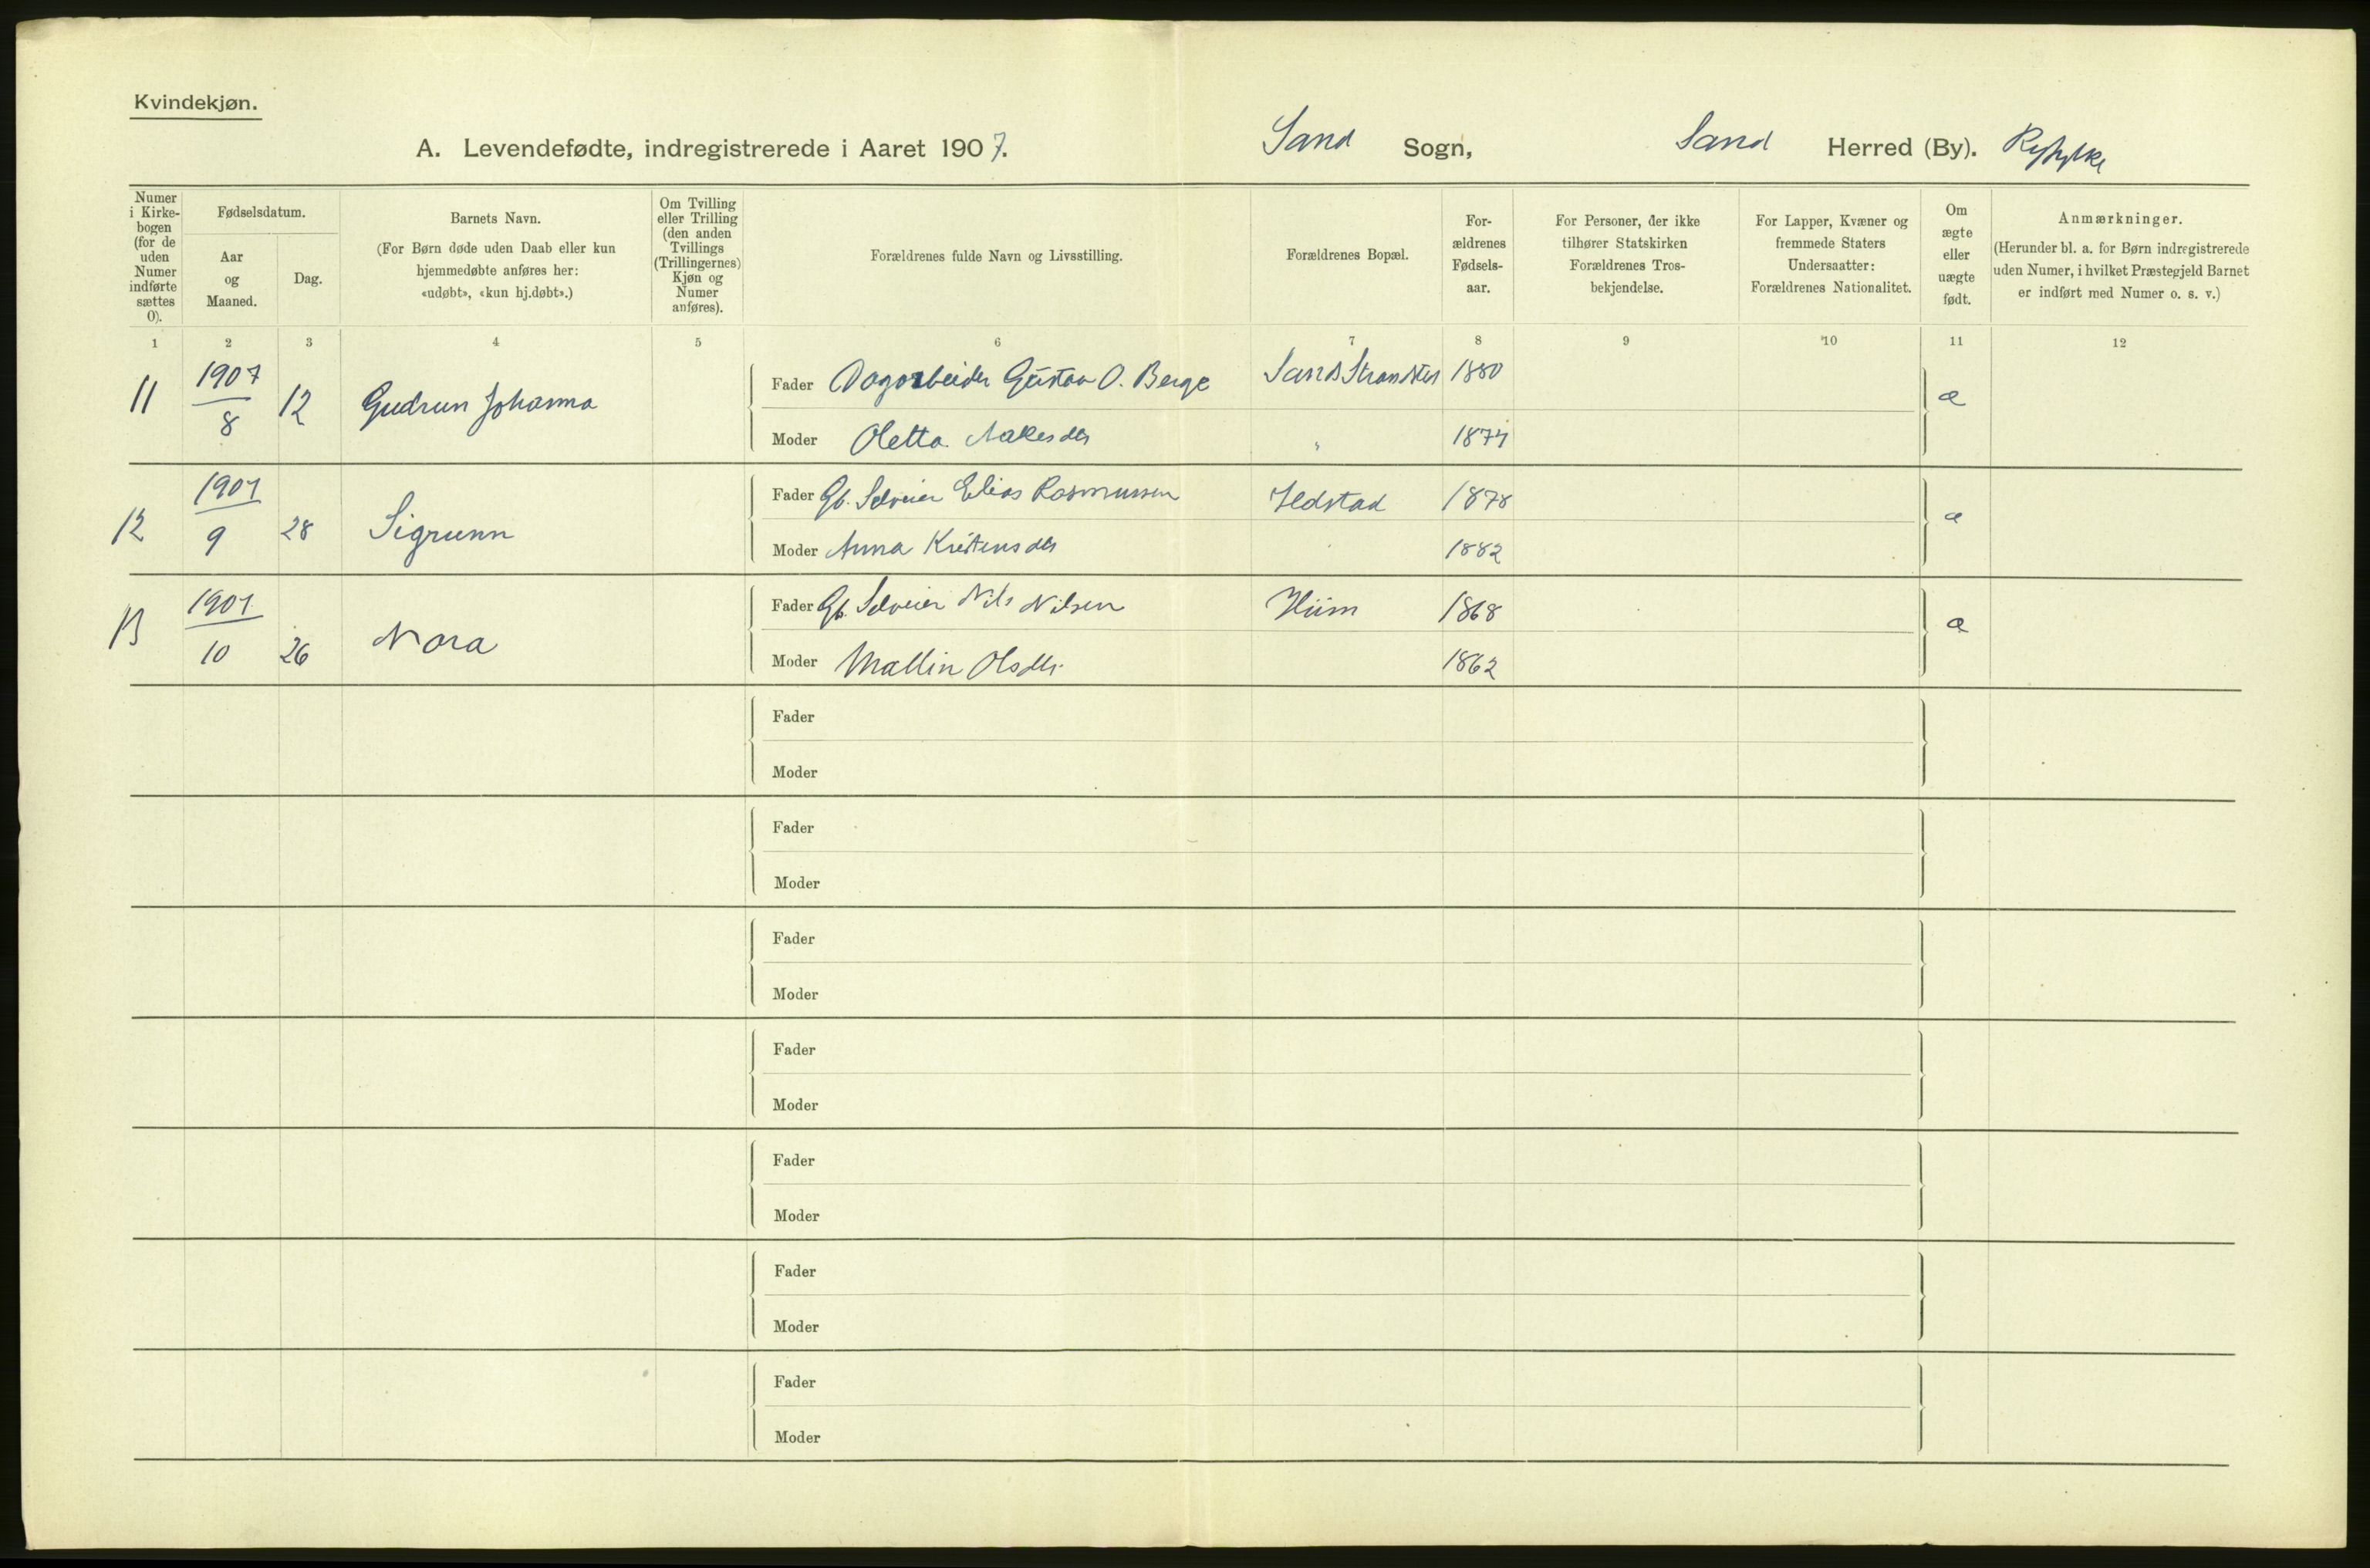 Kvindekjøn.
A. Levendefødte, indregistrerede i Aaret 1907. Sand Sogn, Sand Herred (By). Ryfylke
Numer i Kirkebogen (for de uden Numer indførte sættes 0).
Fødselsdatum.
Aar og Maaned.
Dag.
Barnets Navn.
(For Børn døde uden Daab eller kun
hjemmedøbte anføres her:
«udøbt», «kun hj.døbt».)
Om Tvilling
eller Trilling
(den anden
Tvillings
(Trillingernes)
Kjøn og
Numer
anføres).
Forældrenes fulde Navn og Livsstilling.
Forældrenes Bopæl.
For-
ældrenes
Fødsels-
aar.
For Personer, der ikke
tilhører Statskirken
Forældrenes Tros-
bekjendelse.
For Lapper, Kvæner og
fremmede Staters
Undersaatter:
Forældrenes Nationalitet.
Om
ægte
eller
uægte
født.
Anmærkninger.
(Herunder bl. a. for Børn indregistrerede
uden Numer, i hvilket Præstegjeld Barnet
er indført med Numer o. s. v.)
1 2 3 4 5 6 7 8 9 10 11 12
11 1907 8 12 Gudrun Johanna
Fader Dagarbeider Gustav O. Berge Sand 1880 æ
Moder Oletta Aakesdtr " 1874
12 1907 9 28 Sigrunn
Fader Gb. Selveier Elias Rasmussen 1878 æ
Moder Anna Kristensdtr 1882
13 1907 10 26 Nora
Fader Gb. Selveier Nils Nilsen Hiim 1868 æ
Moder Mallin Olsdtr. 1862
Fader
Moder
Fader
Moder
Fader
Moder
Fader
Moder
Fader
Moder
Fader
Moder
Fader
Moder